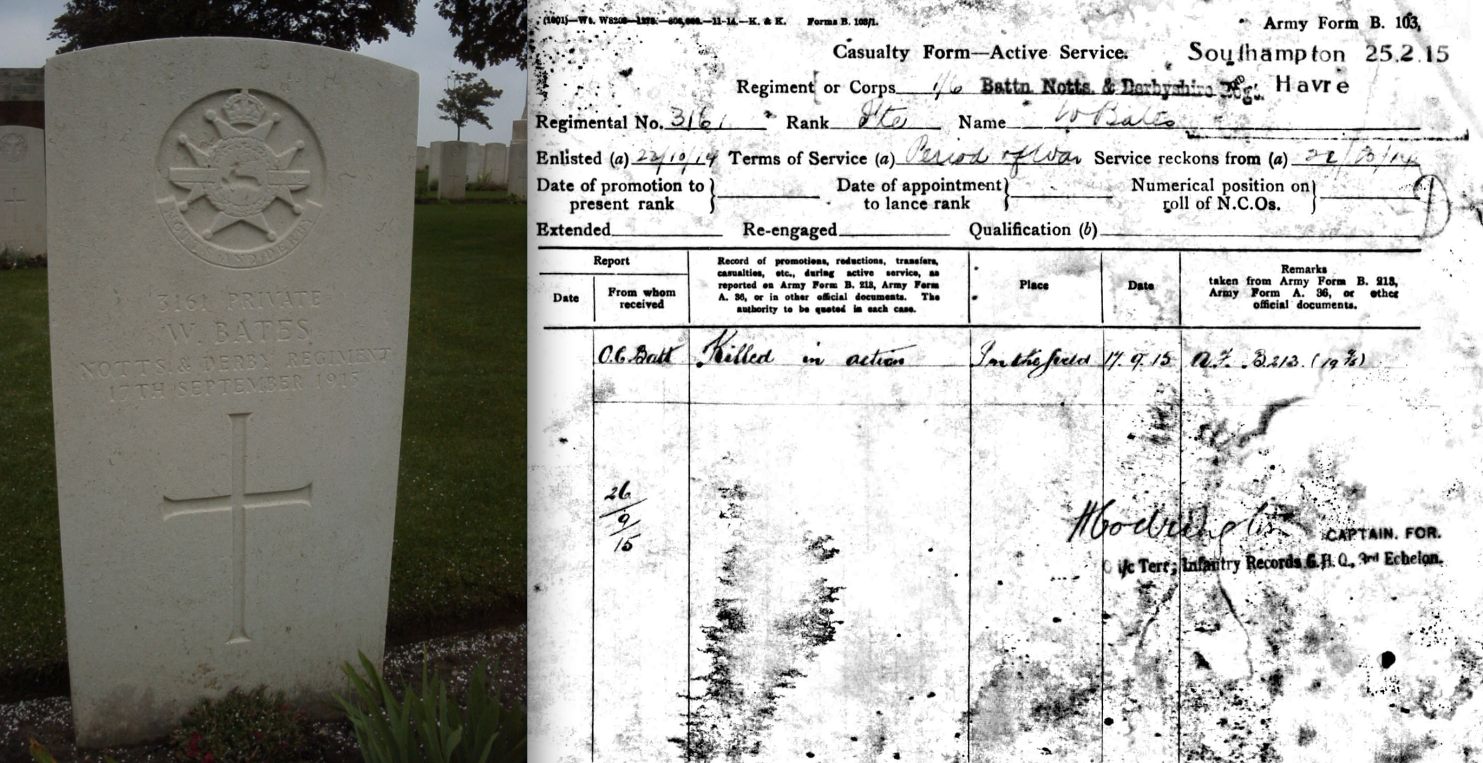 3161 PRIVATE
W BATES
NOTTS & DERBY REGIMENT
17TH SEPTEMBER 1915
Army Form B. 103.
Forms B. 103/1.
Casualty Form—Active Service.
Southampton 25.2.15
Havre
Regiment or Corps 1/6 Battn. Notts. & Derbyshire Regt.
Regimental No. 3161 Rank Pte Name W Bates
Enlisted (a) 22/10/14 Terms of Service (a) Period of War Service reckons from (a)
Date of promotion to present rank
Date of appointment to lance rank
Numerical position on roll of N.C.Os.
Extended Re-engaged Qualification (b)
Report
Date
From whom received
Record of promotions, reductions, transfers,
casualties, etc., during active service, as
reported on Army Form B. 213, Army Form
A. 36, or in other official documents. The
authority to be quoted in each case.
Place
Date
Remarks
taken from Army Form B. 213,
Army Form A. 36, or other
official documents.
O.C. Batt Killed in action In the field 17.9.15 A.F. B213
26
9
15
CAPTAIN. FOR.
i/c Terr; Infantry Records G.H.Q., 3rd Echelon.